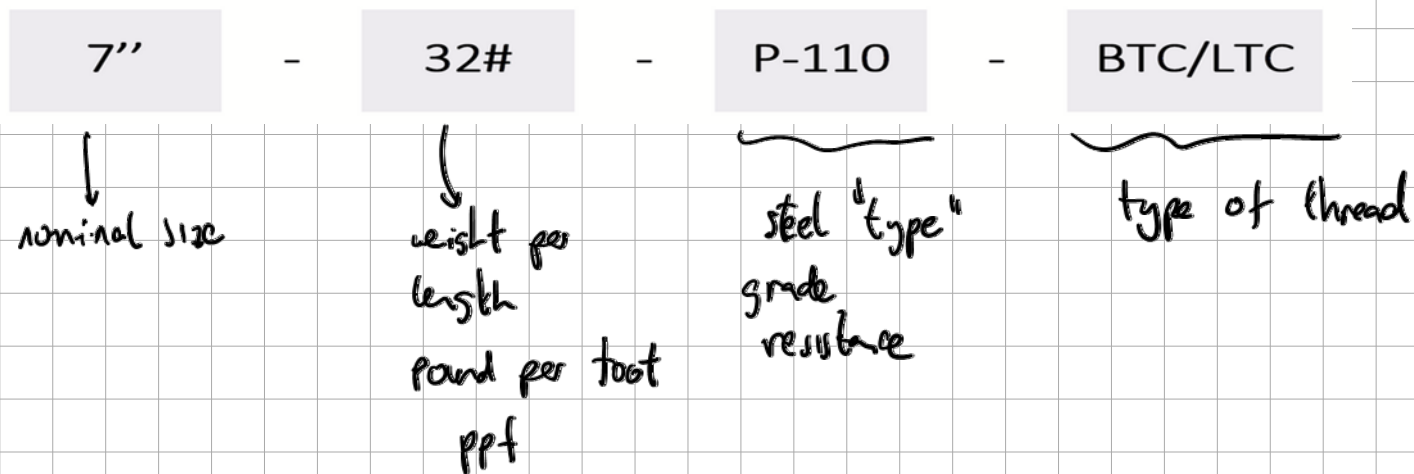 7’’ - 32# - P-110 - BTC/LTC
nominal size
weight per
length
pound per foot
ppf
steel "type"
grade
resistance
type of thread